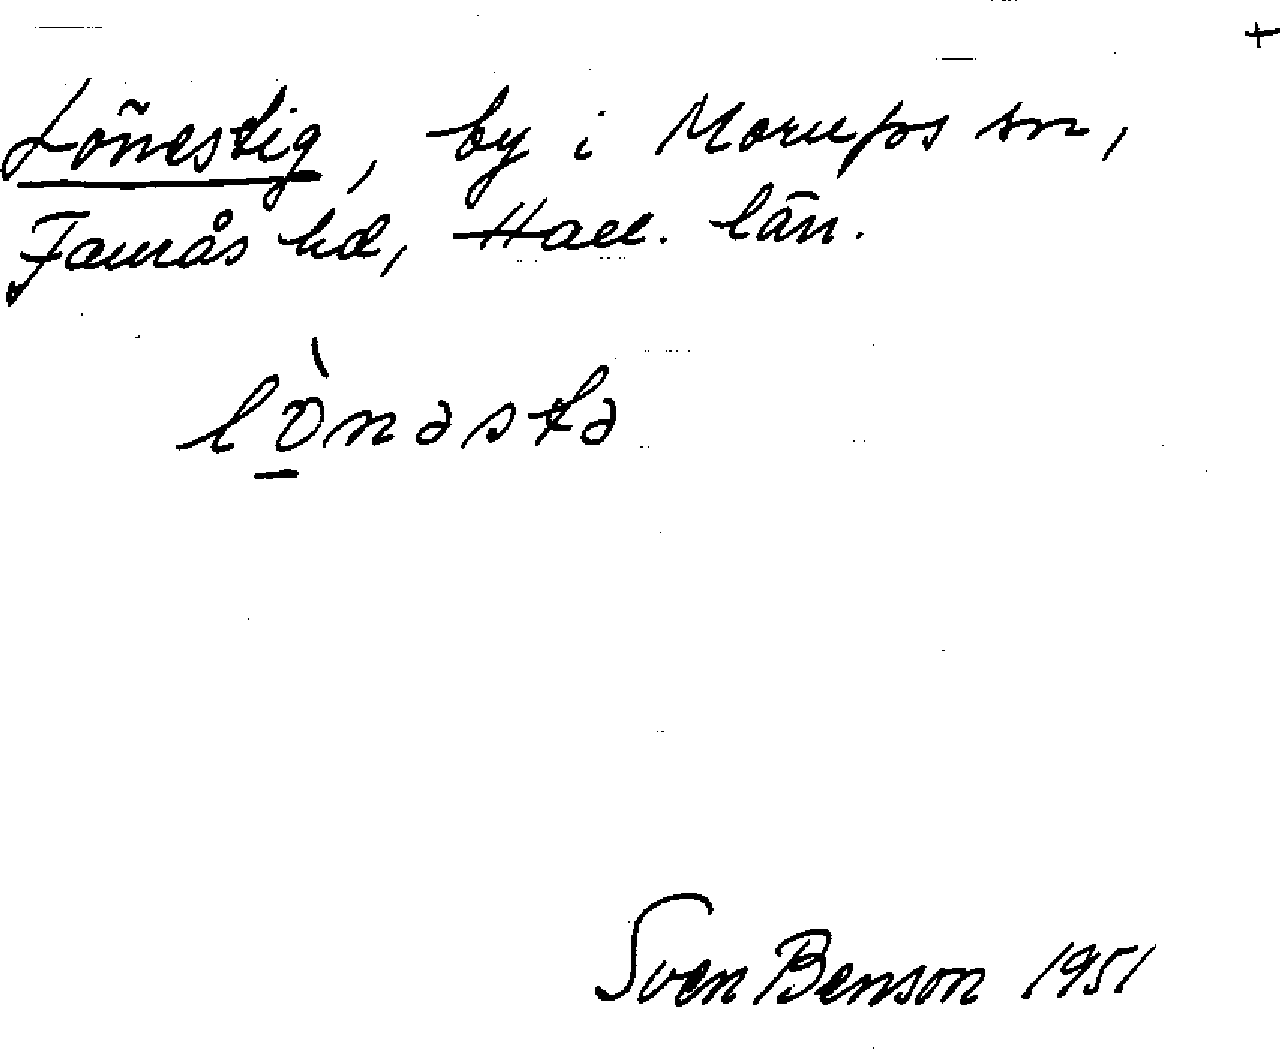 +
Lönestig, by i Morups sn,
Faurås hd, Hall. län.
lö̀nəstə
Sven Benson 1951